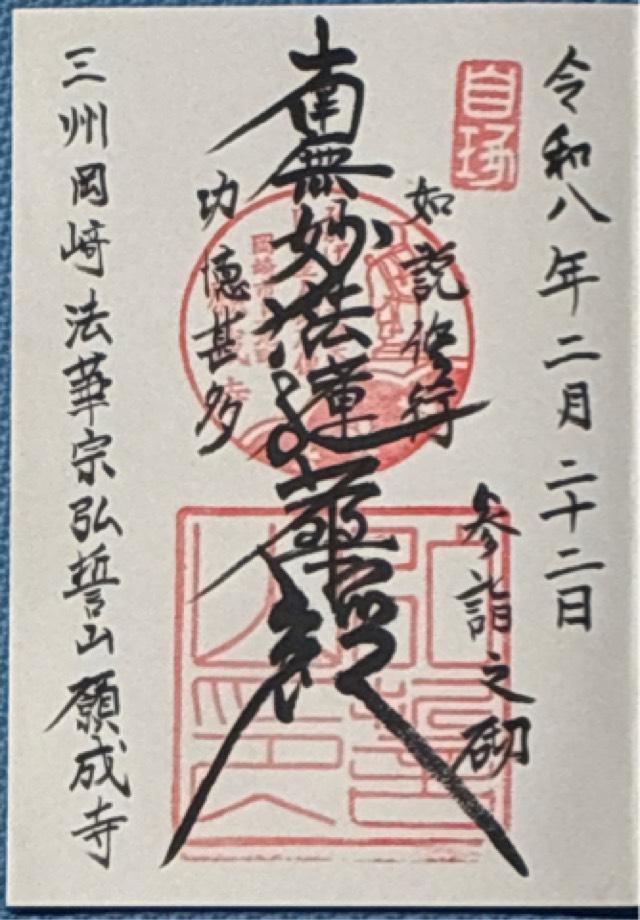 令和八年二月二十二日
参詣之砌
如説修行
南無妙法蓮華経
功徳甚多
三州岡崎法華宗弘誓山願成寺